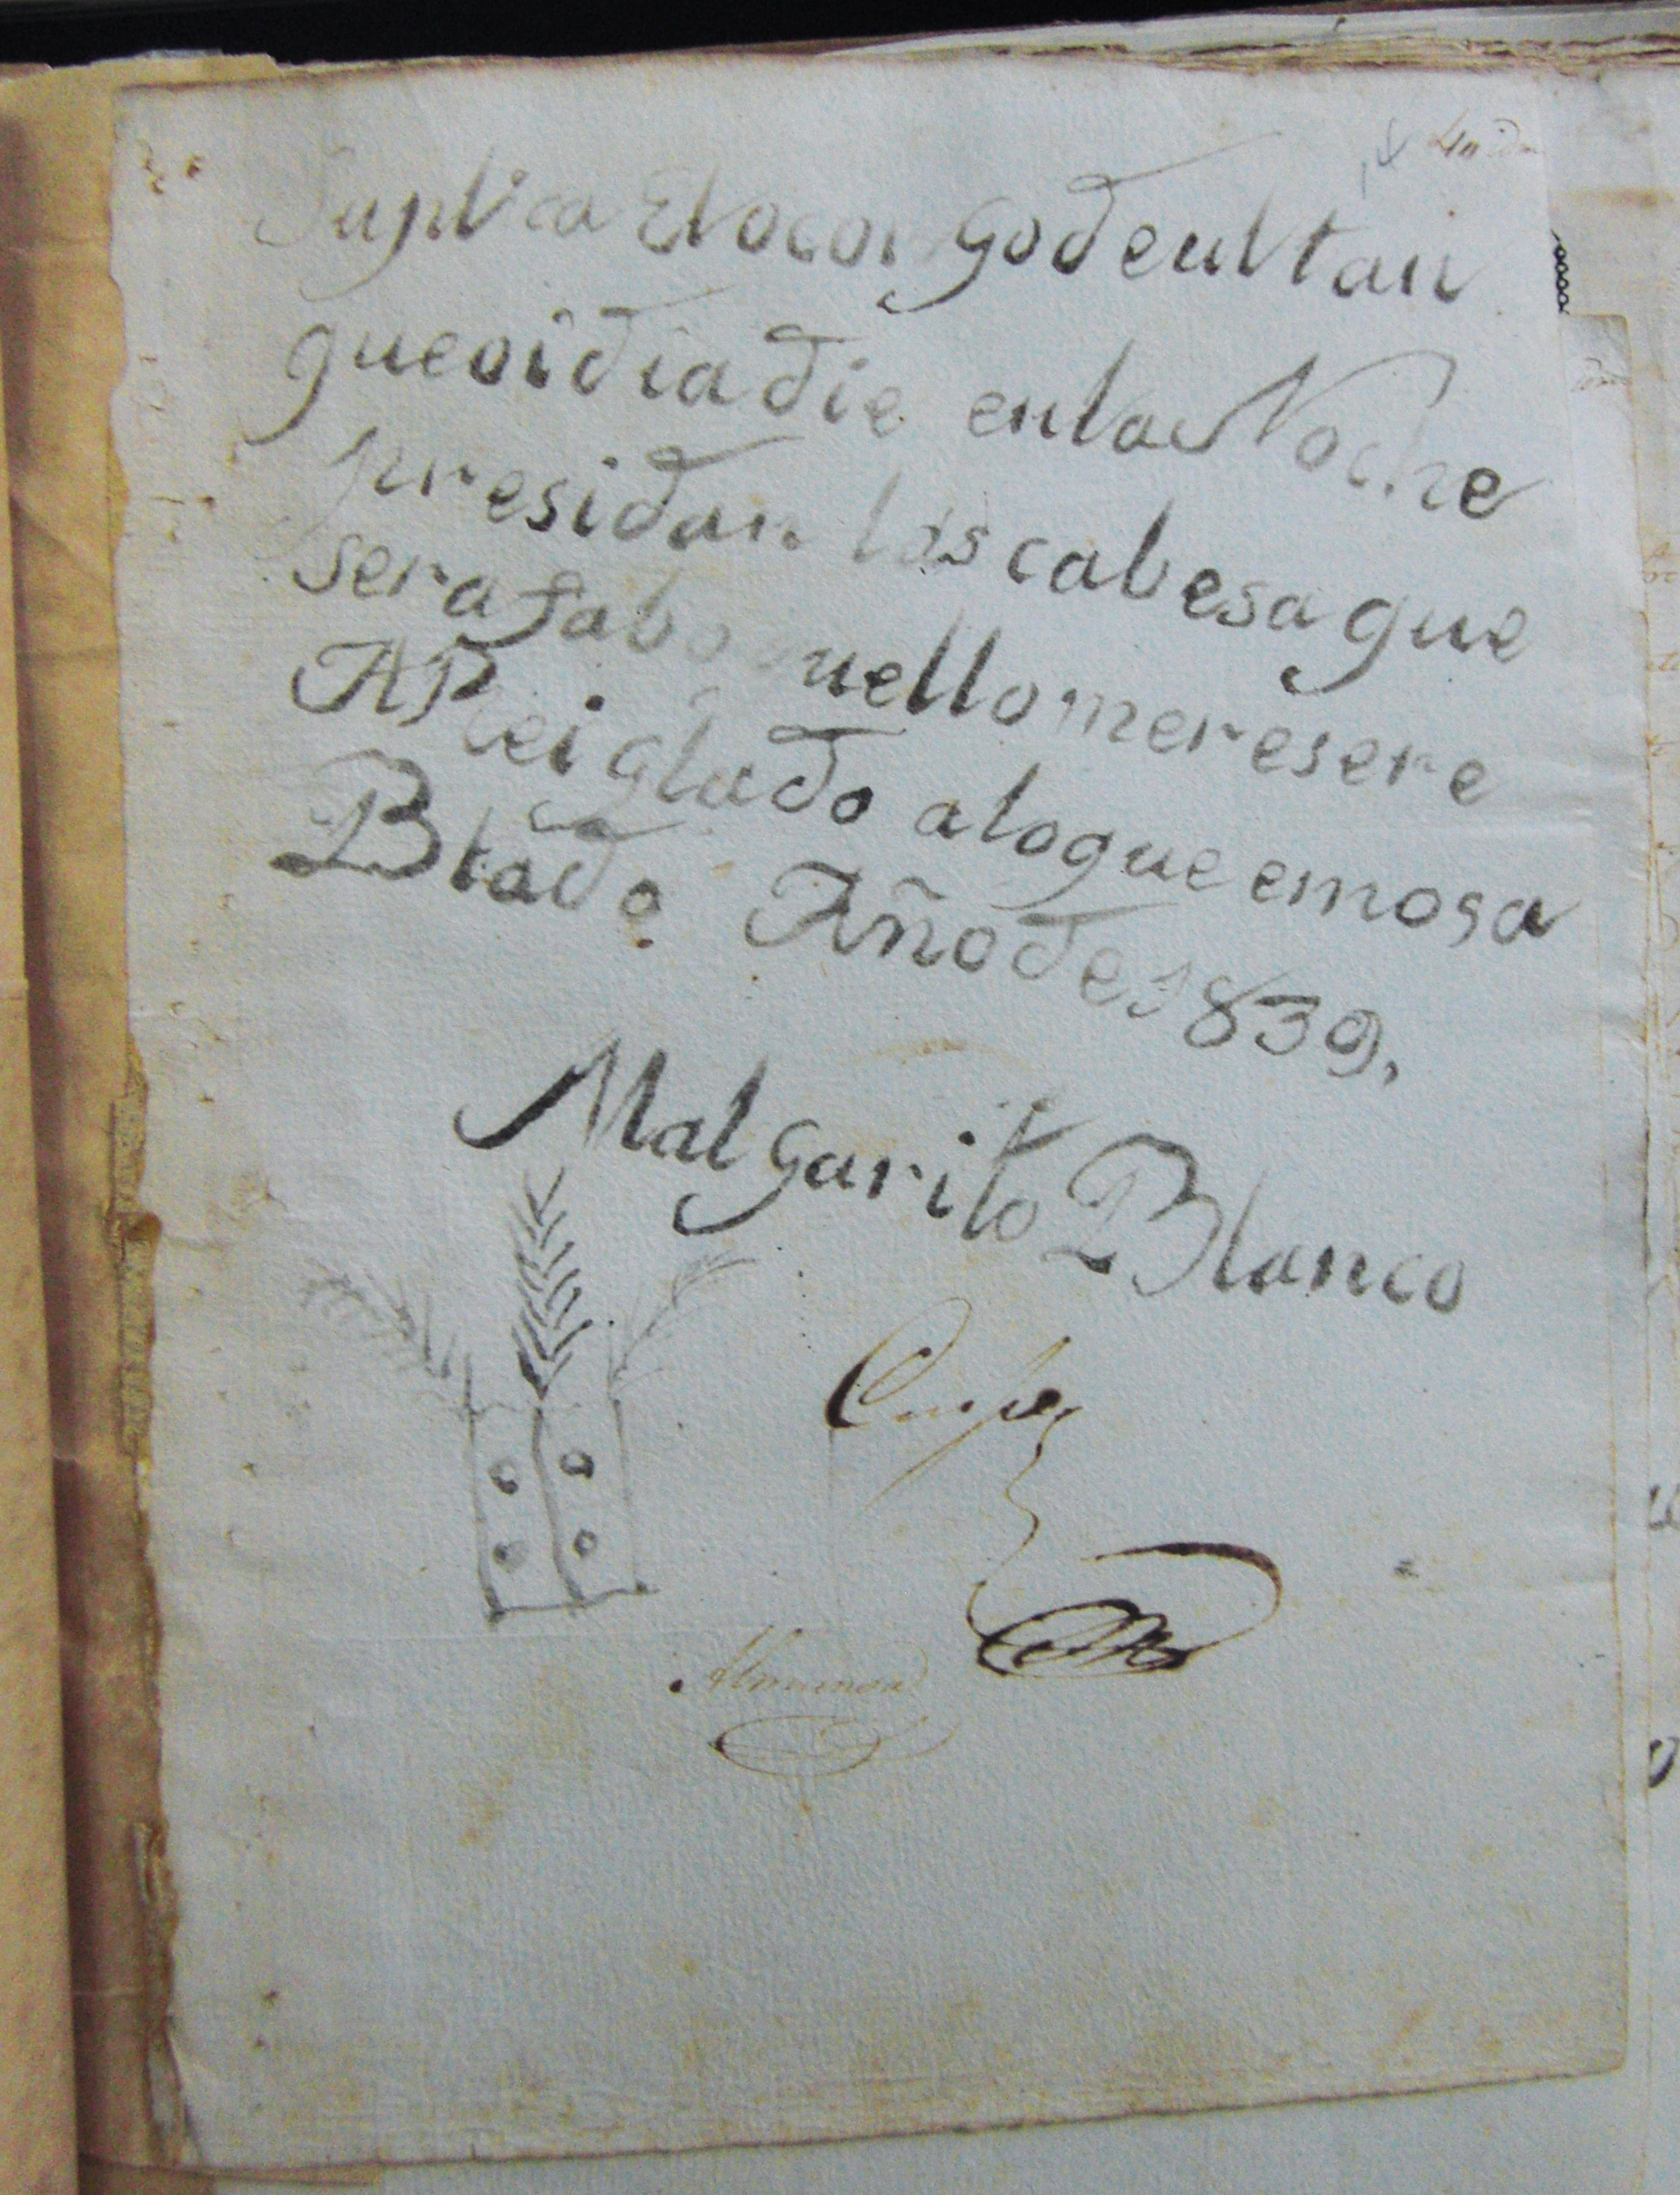 Suplica Elocongo de ultan
que oi dia die en la Noche
presidan los cabesa que
sera fabo nello meresere
AP lei glado alo que emosa
Blado Año de 1839,
Malgarito Blanco